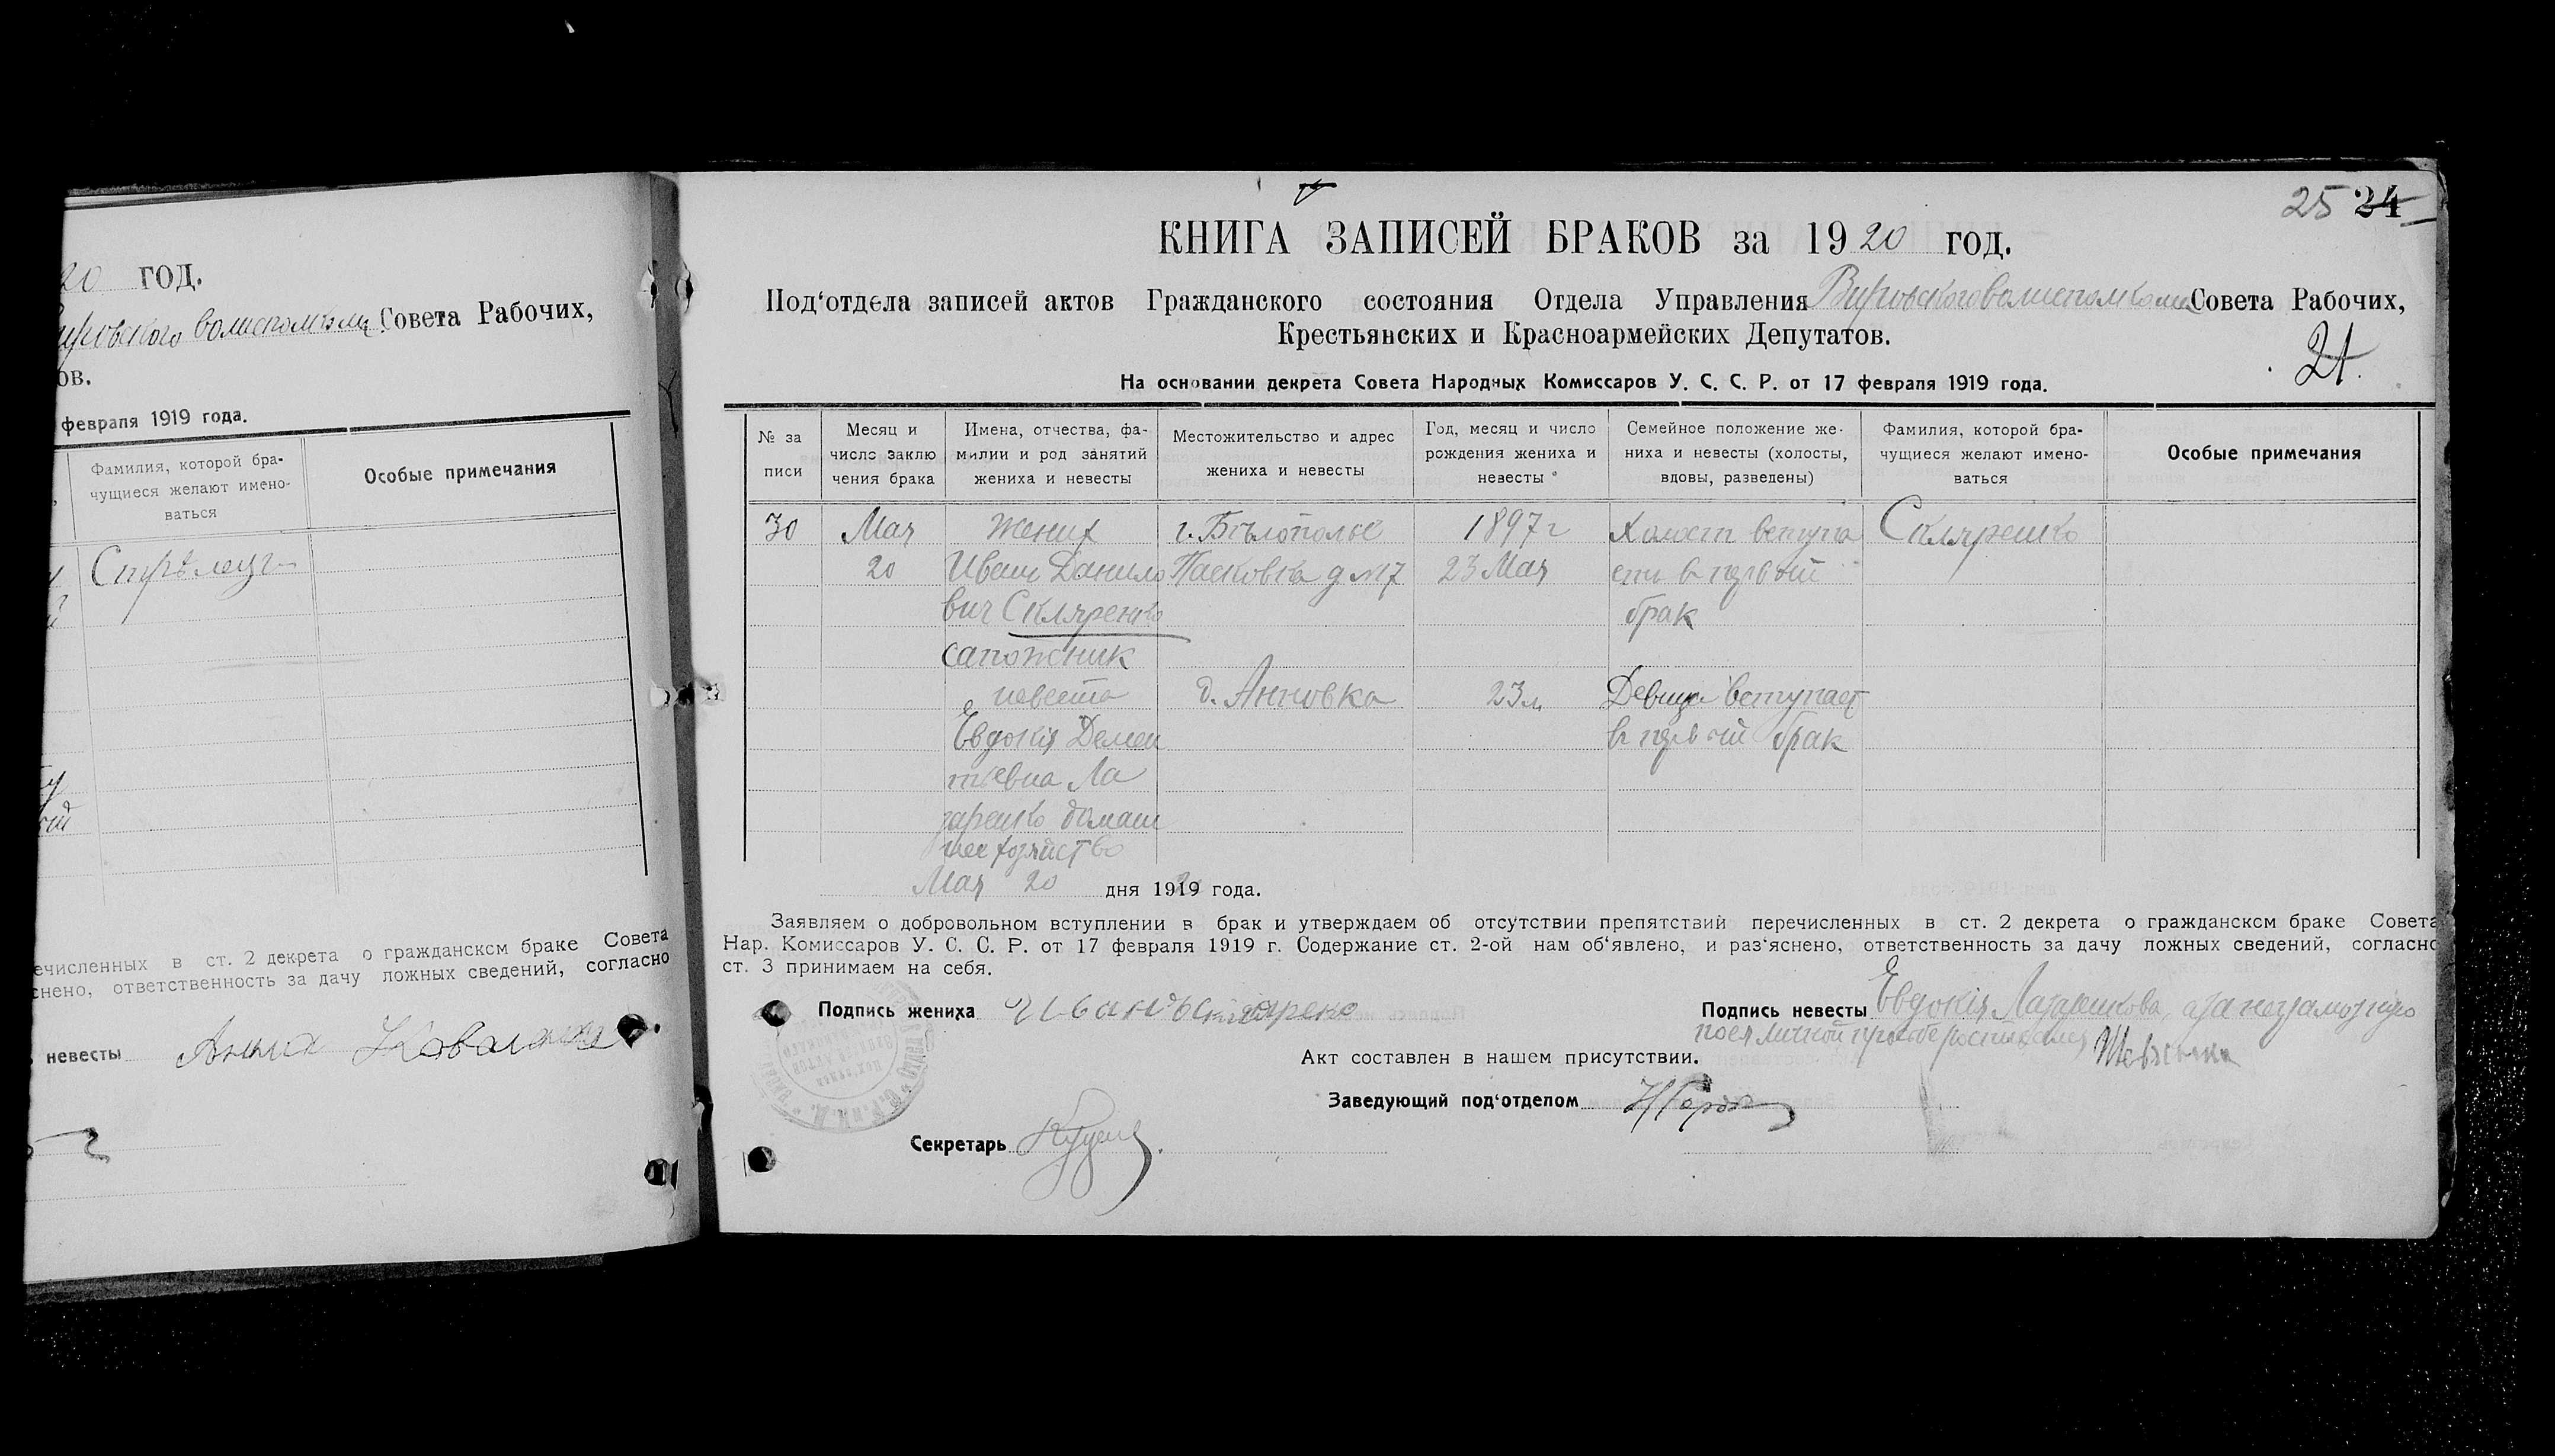 20 год.
Вировского волисполкома Совета Рабочих,
ов.
февраля 1919 года.
Фамилия, которой бра-
чущиеся желают имено-
ваться
Особые примечания
Стрелец
ечисленных в ст. 2 декрета о гражданском браке Совета
снено, ответственность за дачу ложных сведений, согласно
невесты Анна
25 24
КНИГА ЗАПИСЕЙ БРАКОВ за 1920 год.
Под‘отдела записей актов Гражданского состояния Отдела Управления Вировского волисполкома Совета Рабочих,
Крестьянских и Красноармейских Депутатов.
21.
На основании декрета Совета Народных Комиссаров У. С. С. Р. от 17 февраля 1919 года.
№ за
писи
Месяц и
число заклю
чения брака
Имена, отчества, фа-
милии и род занятий
жениха и невесты
Местожительство и адрес
жениха и невесты
Год, месяц и число
рождения жениха и
невесты
Семейное положение же-
ниха и невесты (холосты,
вдовы, разведены)
Фамилия, которой бра-
чущиеся желают имено-
ваться
Особые примечания
30 Мая Жених г. Бѣлополье 1897 г Холост вступа Скляренко
20 Иван Данило Пасковка д №7 23 Мая ет в первый
вич Скляренко брак
сапожник
невеста д. Анновка 23 л Девица вступает
Евдокія Демен в первый брак
тьевна Ла
заренко домаш
нее хозяйство
Мая 20 дня 1919 года.
Заявляем о добровольном вступлении в брак и утверждаем об отсутствии препятствий перечисленных в ст. 2 декрета о гражданском браке Совета
Нар. Комиссаров У. С. С. Р. от 17 февраля 1919 г. Содержание ст. 2-ой нам об‘явлено, и раз‘яснено, ответственность за дачу ложных сведений, согласно
ст. 3 принимаем на себя.
Подпись жениха Иванъ
Подпись невесты Евдокія а за неграмотную
по ея личной просьбе росписался
Акт составлен в нашем присутствии.
Заведующий под‘отделом
Секретарь